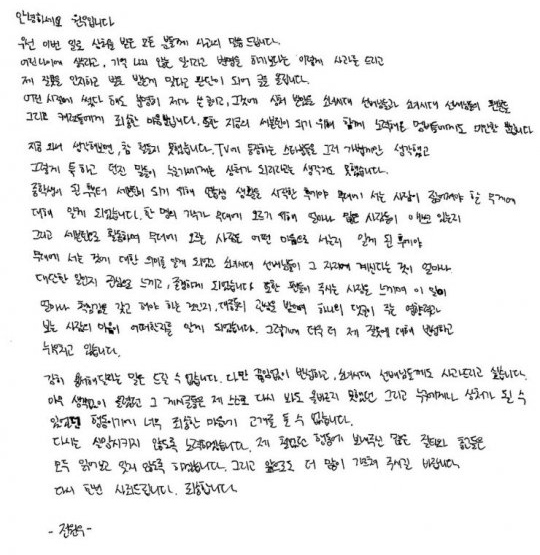 안녕하세요 원우입니다
우선 이번 일로 상처를 받은 모든 분들께 사과의 말씀 드립니다.
어린나이에 생각하고, 기억 나지 않는 일이라고 변명을 하기보다는 이렇게 사과를 드리고
제 잘못을 인지하고 벌을 받는게 맞다고 판단이 되어 글을 올립니다.
어린 시절에 썼다 해도 분명히 제가 쓴 글이고, 그것에 상처 받았을 소녀시대 선배님들과 소녀시대 선배님들의 팬분들
그리고 캐럿들에게 죄송한 마음뿐입니다. 또한 지금의 세븐틴이 되기 위해 함께 노력해온 멤버들에게도 미안할 뿐입니다
지금 와서 생각해보면, 참 철들지 못했습니다. TV에 등장하는 스타분들을 그저 가볍게만 생각했고
그렇게 툭 하고 던진 말들이 누군가에게는 상처가 되리라고는 생각지도 못했습니다.
중학생이 된 뒤부터 세븐틴이 되기 위해 연습생 생활을 시작한 후에야 무대에 서는 사람이 짊어져야 할 무게에
대해 알게 되었습니다. 한 명의 가수가 무대에 오르기 위해 얼마나 많은 사람들이 애쓰고 있는지
그리고 세븐틴으로 활동하며 무대에 오르는 사람은 어떤 마음으로 서는지 알게 된 후에야
무대에 서는 것에 대한 의미를 알게 되었고 소녀시대 선배님들이 그 자리에 계신다는 것이 얼마나
대단한 일인지 진심으로 느끼고, 존경하게 되었습니다. 또한 팬들이 주시는 사랑을 느끼며 이 일이
얼마나 책임감을 갖고 해야 하는 것인지, 대중의 관심을 받으며 하나의 댓글이 주는 영향력과
보는 사람의 마음이 어떠할지를 알게 되었습니다. 그렇기에 더욱 더 제 잘못에 대해 반성하고
뉘우치고 있습니다.
감히 용서해달라는 말은 드릴 수 없습니다. 다만 끊임없이 반성하고, 소녀시대 선배님들께도 사과드리고 싶습니다.
아무 생각없이 올렸었고 그 게시글들은 제 스스로 다시 봐도 올바르지 못했었던 그리고 누구에게나 상처가 될 수
있었던 행동이기에 너무 죄송한 마음에 고개를 들 수 없습니다.
다시는 실망시키지 않도록 노력하겠습니다. 제 잘못된 행동에 보내주신 많은 질타와 충고들은
모두 읽어보고 잊지 않도록 하겠습니다. 그리고 앞으로도 더 많이 가르쳐 주시길 바랍니다.
다시 한번 사죄드립니다. 죄송합니다.
- 전원우 -